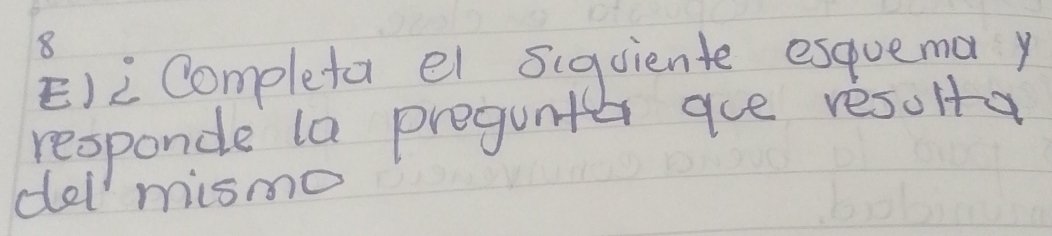 8
E) ¿ Completa el siguiente esquema y
responde la pregunta que resulta
del mismo